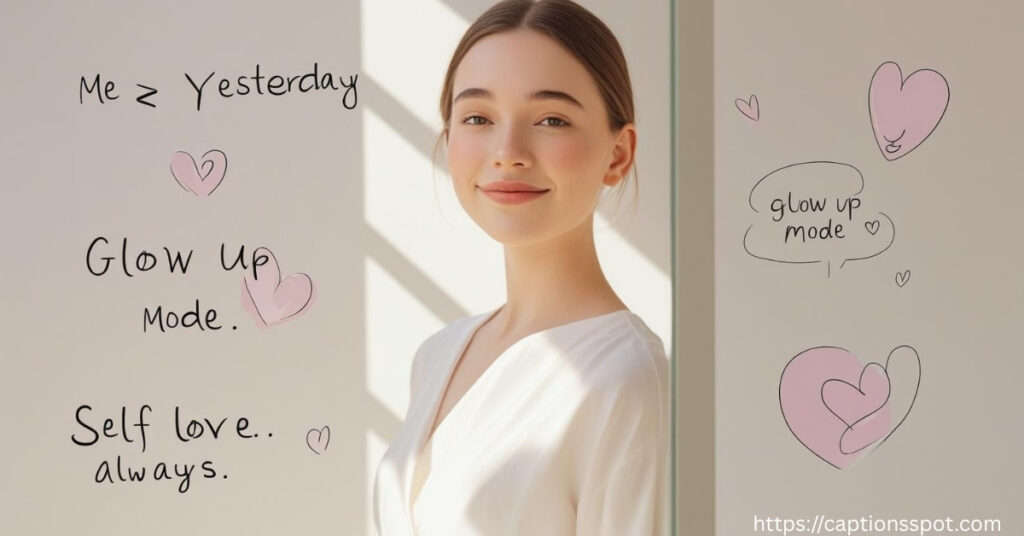 Me ≥ Yesterday
Glow Up
Mode.
Self love..
always.
glow up
mode
https://captionsspot.com